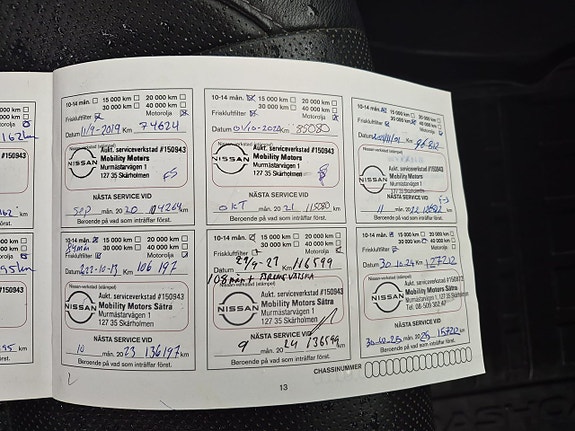 10-14 mån. 15 000 km 20 000 km
30 000 km 40 000 km
Friskluftfilter Motorolja
Datum 11/9-2019 Km 74624
Nissan-verkstad (stämpel)
NISSAN
Aukt. serviceverkstad #150943
Mobility Motors
Murmästarvägen 1
127 35 Skärholmen
NÄSTA SERVICE VID
Sep mån. 20 20 104264 km
Beroende på vad som inträffar först.
10-14 mån. 15 000 km 20 000 km
30 000 km 40 000 km
Friskluftfilter Motorolja
Datum 01/10-2020 Km 85080
Nissan-verkstad (stämpel)
NISSAN
Aukt. serviceverkstad #150943
Mobility Motors
Murmästarvägen 1
127 35 Skärholmen
NÄSTA SERVICE VID
OKT mån. 20 21 115080 km
Beroende på vad som inträffar först.
10-14 mån. 15 000 km 20 000 km
30 000 km 40 000 km
Friskluftfilter Motorolja
Datum Km 96812
NISSAN
Aukt. serviceverkstad #150943
Mobility Motors
Murmästarvägen 1
127 35 Skärholmen
NÄSTA SERVICE VID
11 mån. 20 km
Beroende på vad som inträffar först.
10-14 mån. 15 000 km 20 000 km
30 000 km 40 000 km
84 mån
Friskluftfilter Motorolja
Datum 22-10-13 Km 106 197
Nissan-verkstad (stämpel)
NISSAN
Aukt. serviceverkstad #150943
Mobility Motors Sätra
Murmästarvägen 1
127 35 Skärholmen
NÄSTA SERVICE VID
10 mån. 20 23 136197 km
Beroende på vad som inträffar först.
10-14 mån. 15 000 km 20 000 km
30 000 km 40 000 km
Friskluftfilter Motorolja
Datum Km 116599
108 mån +
NISSAN
Aukt. serviceverkstad #150943
Mobility Motors Sätra
Murmästarvägen 1
127 35 Skärholmen
NÄSTA SERVICE VID
9 mån. 20 24 136599 km
Beroende på vad som inträffar först.
10-14 mån. 15 000 km 20 000 km
30 000 km 40 000 km
Friskluftfilter Motorolja
Datum 30-10-24 Km 127212
Nissan-verkstad (stämpel)
NISSAN
Aukt. serviceverkstad #150943
Mobility Motors Sätra
Murmästarvägen 1
127 35 Skärholmen
NÄSTA SERVICE VID
30-10-25 mån. 20 25 157212 km
Beroende på vad som inträffar först.
CHASSINUMMER
13